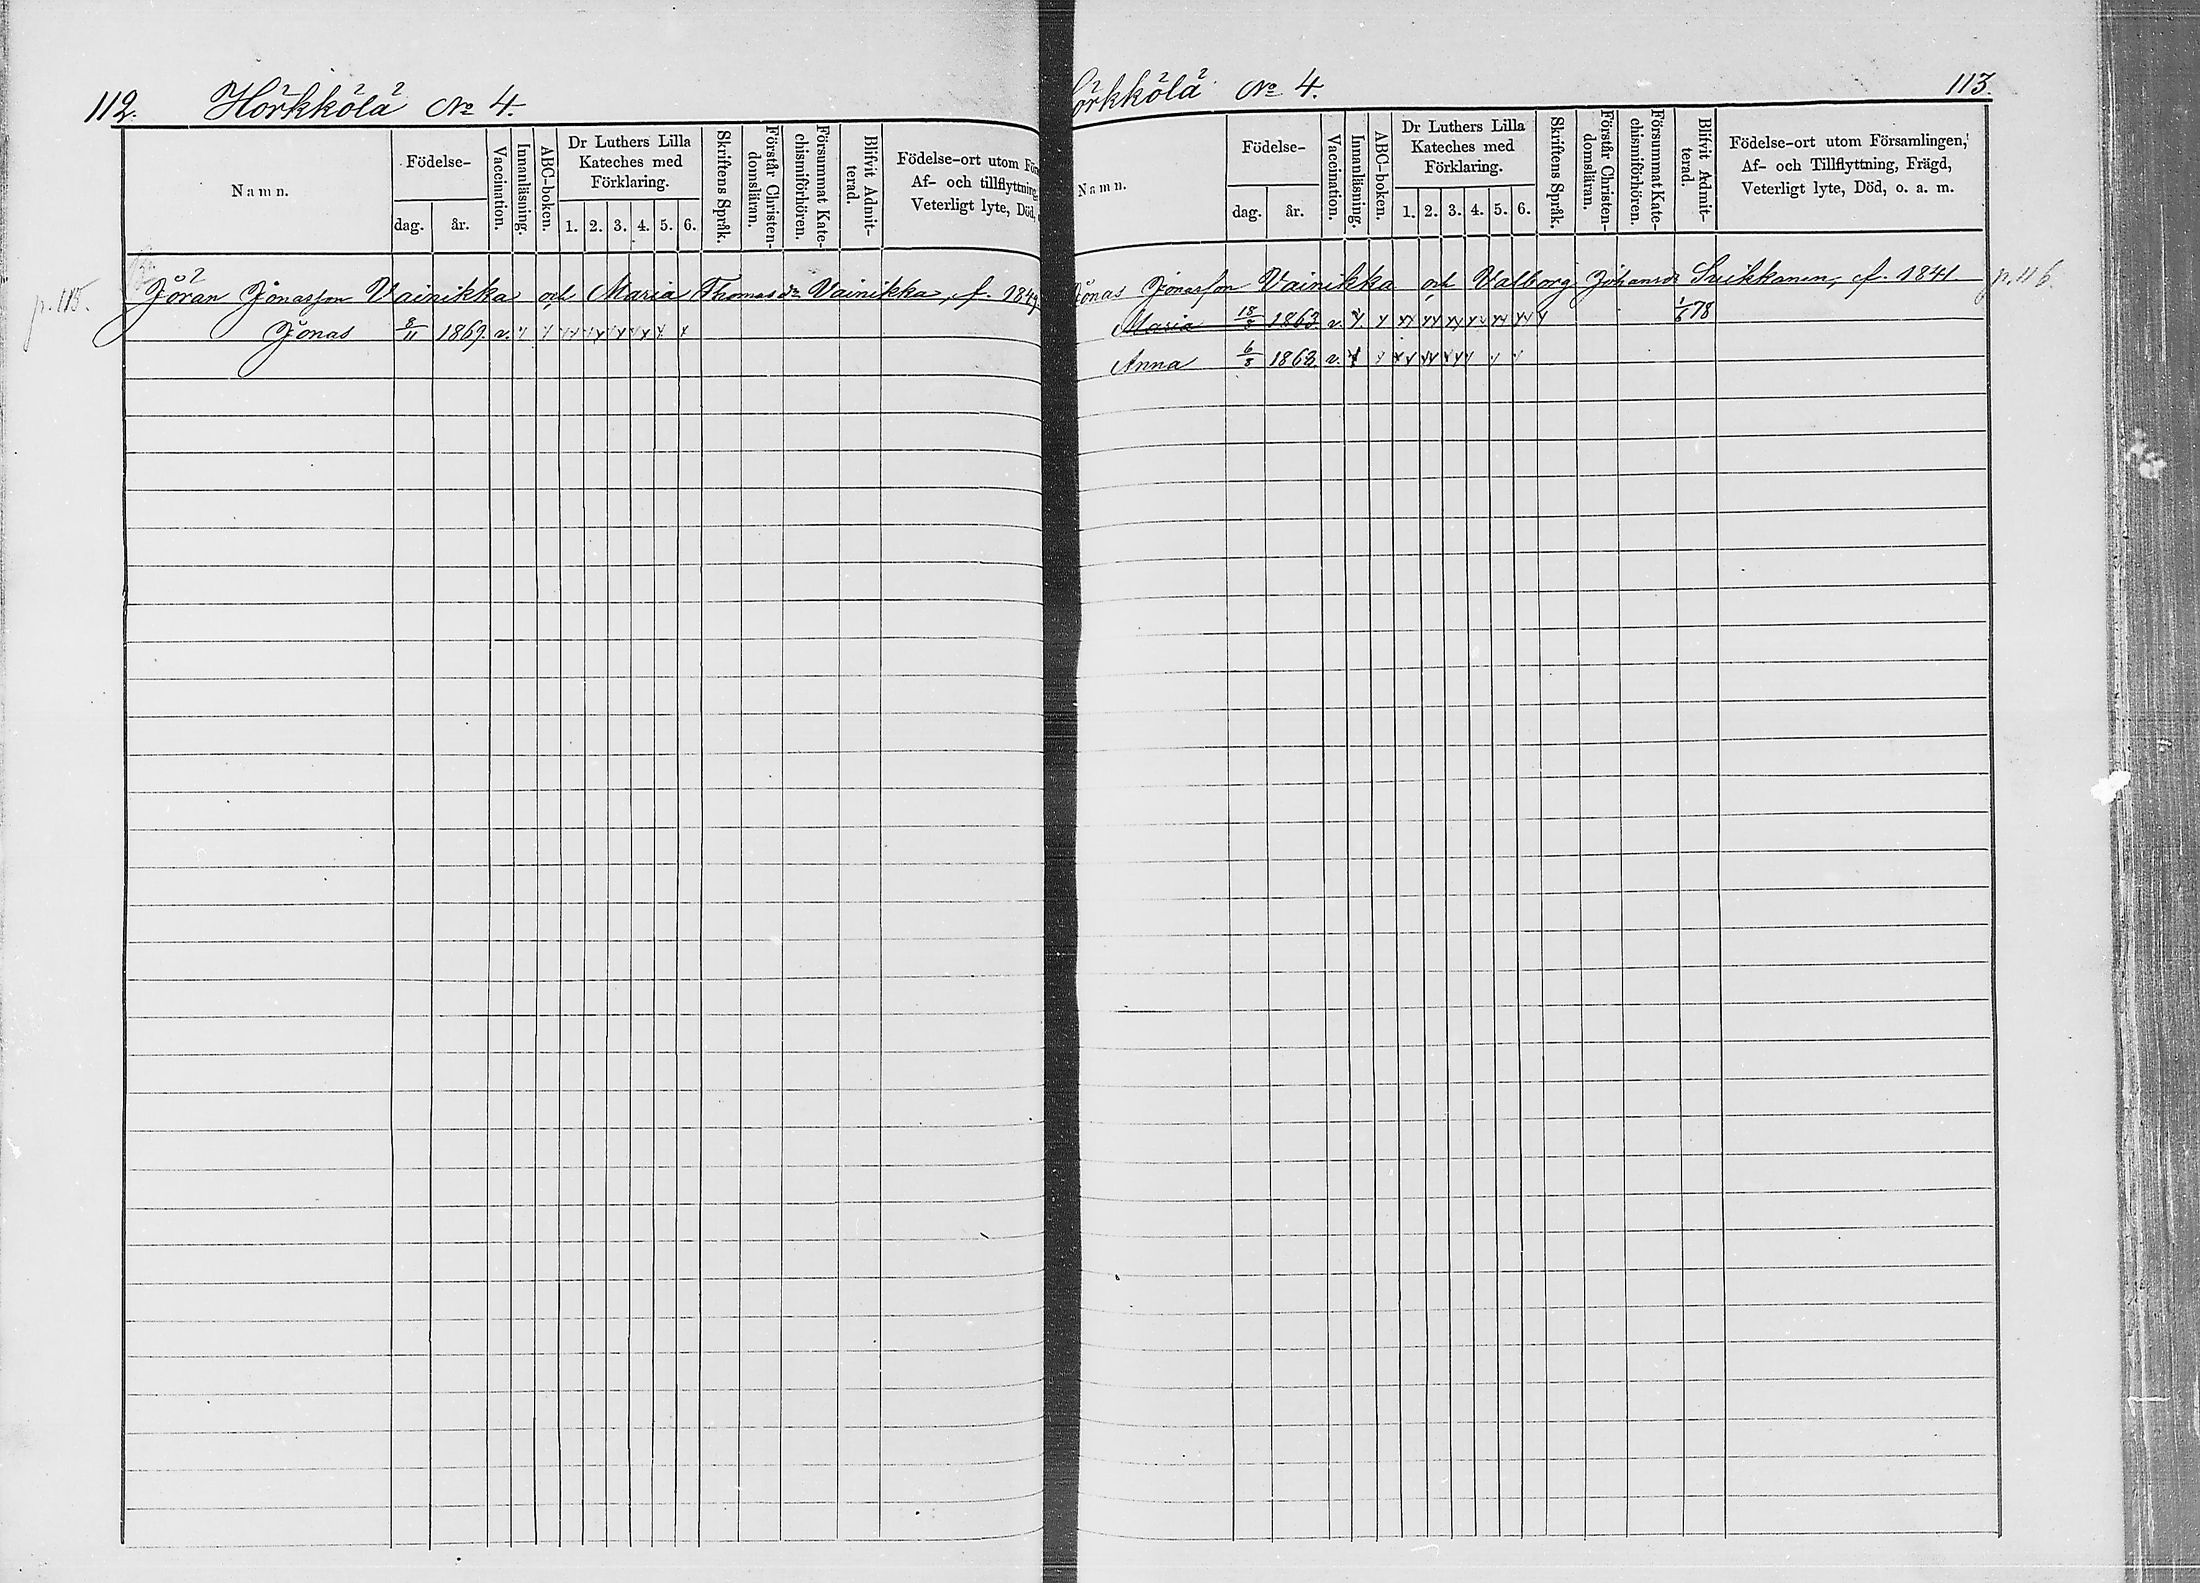 112. Hörkkölä No 4.
Namn.
Födelse-
dag. år.
Vaccination.
Innanläsning.
ABC-boken.
Dr Luthers Lilla
Kateches med
Förklaring.
1. 2. 3. 4. 5. 6.
Skriftens Språk.
Förstår Christen-
domsläran.
Försummat Kate-
chismiförhören.
Blifvit Admit-
terad.
Födelse-ort utom För
Af- och tillflyttning,
Veterligt lyte, Död,
p. 115. Jöran Jonasson Vainikka och Maria Thomasdr Vainikka, f. 1849.
Jonas 8/11 1869. v.
örkkölä No 4. 113.
Namn.
Födelse-
dag. år.
Vaccination.
Innanläsning.
ABC-boken.
Dr Luthers Lilla
Kateches med
Förklaring.
1. 2. 3. 4. 5. 6.
Skriftens Språk.
Förstår Christen-
domsläran.
Försummat Kate-
chismiförhören.
Blifvit Admit-
terad.
Födelse-ort utom Församlingen,
Af- och Tillflyttning, Frägd,
Veterligt lyte, Död, o. a. m.
Jonas Jonasson Vainikka och Valborg Johansdr Suikkanen, f. 1841. p. 116.
Maria 1863. v. 1/6 78
Anna 6/8 1868. v.